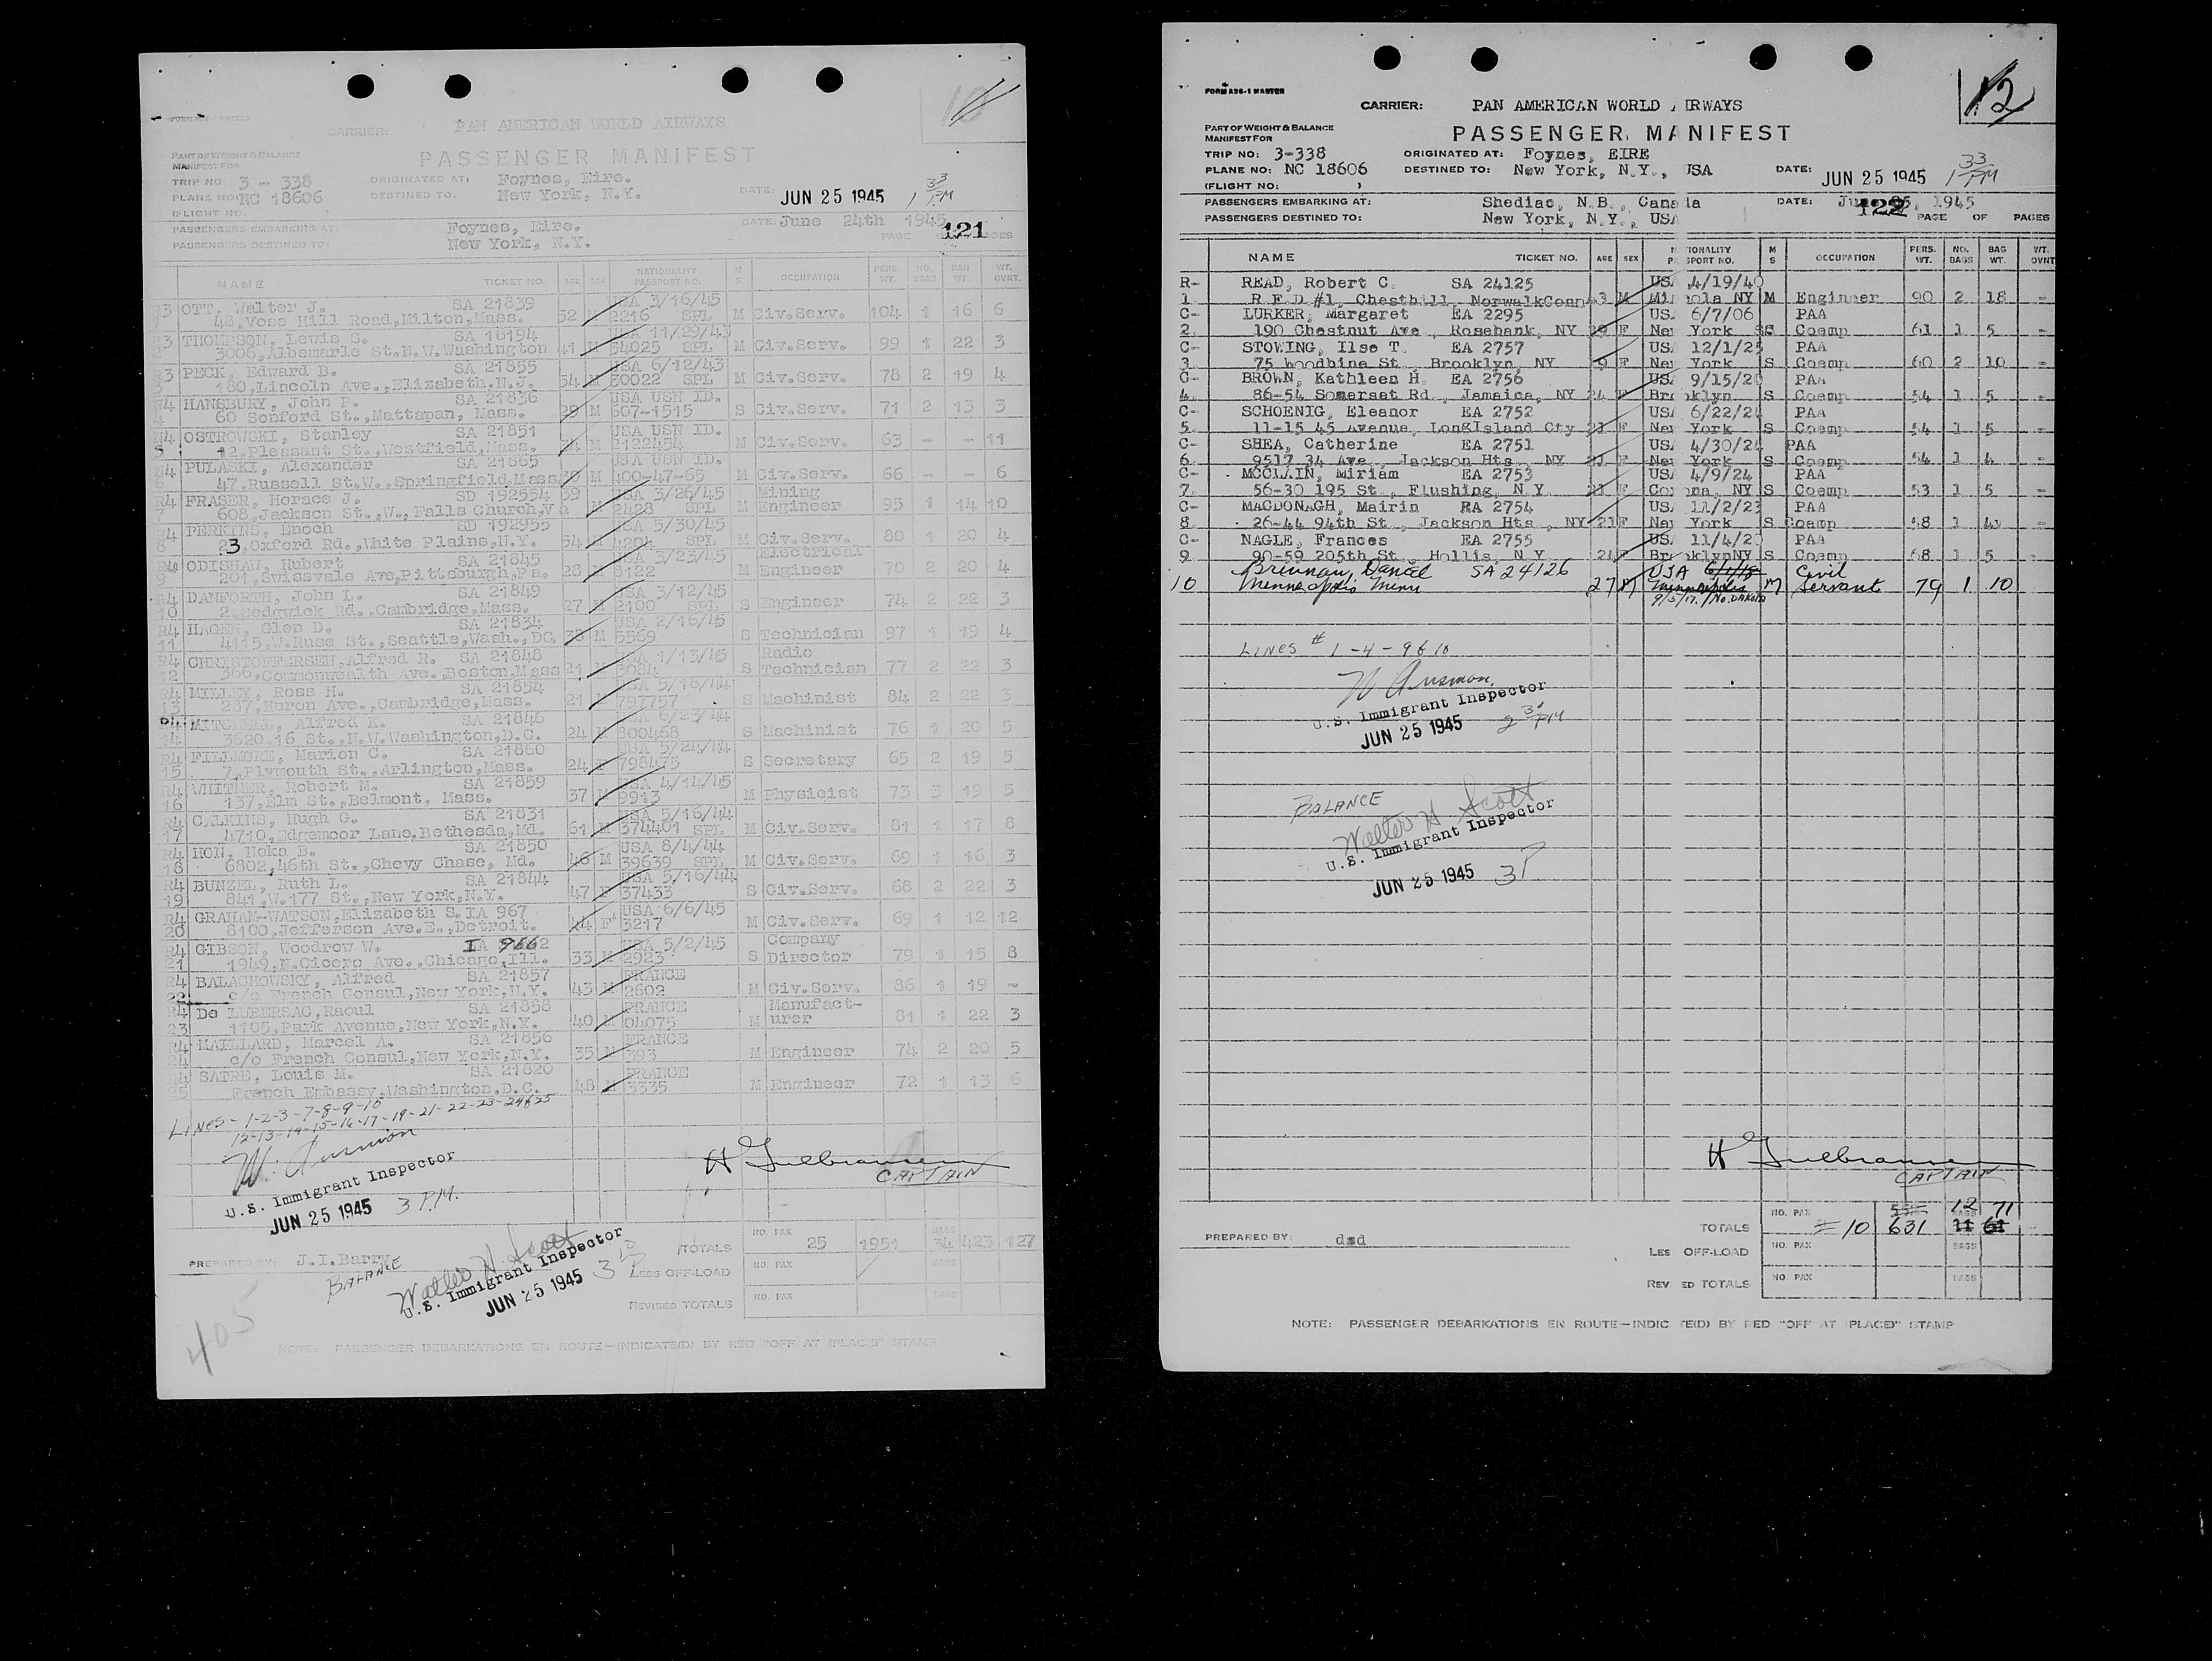 10
FORM A26-1 MASTER
CARRIER: PAN AMERICAN WORLD AIRWAYS
PART OF WEIGHT & BALANCE
MANIFEST FOR
PASSENGER MANIFEST
TRIP NO: 3 - 338 ORIGINATED AT: Foynes, Eire.
PLANE NO: NC 18606 DESTINED TO: New York, N.Y. DATE: JUN 25 1945 1 33 PM
(FLIGHT NO. )
PASSENGERS EMBARKING AT: Foynes, Eire. DATE: June 24th 1945
PASSENGERS DESTINED TO: New York, N.Y. PAGE 121 PAGES
NAME TICKET NO. AGE SEX NATIONALITY PASSPORT NO. M S OCCUPATION PERS. WT. NO. BAGS BAG WT. WT. OVNT.
R3 OTT, Walter J. SA 21839 USA 3/16/45
1 48, Vose Hill Road,Milton,Mass. 52 M 2216 SPL M Civ.Serv. 104 1 16 6
R3 THOMPSON, Lewis S. SA 16194 USA 11/29/43
2 3006,Albemarle St.N.W.Washington 41 M 34025 SPL M Civ.Serv. 99 1 22 3
R3 PECK, Edward B. SA 21855 USA 6/12/43
3 180,Lincoln Ave.,Elizabeth,N.J. 54 M 30022 SPL M Civ.Serv. 78 2 19 4
N4 HANSBURY, John P. SA 21836 USA USN ID.
4 60 Sonford St.,Mattapan, Mass. 29 M 607-1515 S Civ.Serv. 71 2 13 3
N4 OSTROWSKI, Stanley SA 21851 USA USN ID.
5 12,Pleasant St.,Westfield,Mass. 24 M 2122454 M Civ.Serv. 63 - - 11
N4 PULASKI, Alexander SA 21865 USA USN ID.
6 47,Russell St.W.,Springfield,Mass 30 M 400-47-65 M Civ.Serv. 66 - - 6
R4 FRASER, Horace J. SD 192554 39 USA 3/26/45 Mining
7 608,Jackson St.,W., Falls Church,Va M 2428 SPL M Engineer 95 1 14 10
R4 PERKINS, Enoch SD 192955 USA 5/30/45
8 23,Oxford Rd.,White Plains,N.Y. 54 M 4204 SPL M Civ.Serv. 80 1 20 4
R4 ODISHAW, Hubert SA 21845 USA 3/23/45 Electrical
9 201,Swissvale Ave,Pittsburgh,Pa. 28 M 3122 M Engineer 70 2 20 4
R4 DANFORTH, John I. SA 21849 USA 3/12/45
10 2.Sedgwick Rd.,Cambridge,Mass. 27 M 2100 SPL S Engineer 74 2 22 3
R4 HAGEN, Glen D. SA 21834 USA 2/16/45
11 4115,W.Ruse St.,Seattle,Wash.,DC. 38 M 5569 S Technician 97 1 19 4
R4 CHRISTOFFERSEN,Alfred R. SA 21848 USA 1/13/45 Radio
12 366,Commonwealth Ave.Boston,Mass 21 M 3084 S Technician 77 2 22 3
R4 MILLEY, Ross H. SA 21854 USA 5/16/44
13 287,Huron Ave.,Cambridge,Mass. 21 M 797757 S Machinist 84 2 22 3
R4 MITCHELL, Alfred K. SA 21846 USA 6/23/44
14 3620.16 St.,N.W.Washington,D.C. 24 M 800468 S Machinist 76 1 20 5
R4 FILLMORE, Marion C. SA 21860 USA 5/24/44
15 7,Plymouth St.,Arlington,Mass. 24 F 798475 S Secretary 65 2 19 5
R4 WHITMER, Robert M. SA 21859 USA 4/14/45
16 137,Elm St.,Belmont, Mass. 37 M 9913 M Physicist 73 3 19 5
R4 CALKINS, Hugh G. SA 21831 USA 5/16/44
17 4710,Edgemoor Lane,Bethesda,Md. 61 M 374401 SPL M Civ.Serv. 81 1 17 8
R4 HON, Hoka B. SA 21850 USA 8/4/44
18 6802,46th St.,Chevy Chase, Md. 46 M 39639 SPL M Civ.Serv. 69 1 16 3
R4 BUNZEL, Ruth L. SA 21844 USA 5/16/44
19 841,W.177 St.,New York,N.Y. 47 F 37433 S Civ.Serv. 68 2 22 3
R4 GRAHAM-WATSON,Elizabeth S.IA 967 USA 6/6/45
20 8100,Jefferson Ave.E.,Detroit. 44 F 3217 M Civ.Serv. 69 1 12 12
R4 GIBSON, Woodrow W. IA 9662 USA 5/2/45 Company
21 1949,N.Cicero Ave.,Chicago,Ill. 33 M 2923 S Director 79 1 15 8
R4 BALACHOWSKY, Alfred SA 21857 FRANCE
22 c/o French Consul,New York,N.Y. 43 M 2602 M Civ.Serv. 86 1 19 -
R4 De LUBERSAC,Raoul SA 21858 FRANCE Manufact-
23 1105,Park Avenue,New York,N.Y. 40 M 04075 M urer 81 1 22 3
R4 MAILLARD, Marcel A. SA 21856 FRANCE
24 c/o French Consul,New York,N.Y. 35 M 393 M Engineer 74 2 20 5
R4 SATRE, Louis M. SA 21820 FRANCE
25 French Embassy,Washington,D.C. 48 M 3335 M Engineer 72 1 13 6
LINES - 1-2-3-7-8-9-10
12-13-14-15-16-17-19-21-22-23-24&25
U.S. Immigrant Inspector
JUN 25 1945 3 PM.
H Gulbransen
CAPTAIN
PREPARED BY: J.I.Barry
BALANCE
Walter H Scott
U.S. Immigrant Inspector
JUN 25 1945 3 10 P
TOTALS NO. PAX 25 1951 BAGS 34 423 127
LESS OFF-LOAD NO. PAX BAGS
REVISED TOTALS NO. PAX BAGS
405
NOTE: PASSENGER DEBARKATIONS EN ROUTE—INDICATE(D) BY RED "OFF AT (PLACE)" STAMP
12
FORM A26-1 MASTER
CARRIER: PAN AMERICAN WORLD AIRWAYS
PART OF WEIGHT & BALANCE
MANIFEST FOR
PASSENGER MANIFEST
TRIP NO: 3-338 ORIGINATED AT: Foynes, EIRE
PLANE NO: NC 18606 DESTINED TO: New York, N.Y., USA DATE: JUN 25 1945 1 33 PM
(FLIGHT NO: )
PASSENGERS EMBARKING AT: Shediac, N.B., Canada DATE: June 25, 1945
PASSENGERS DESTINED TO: New York, N.Y., USA 122 PAGE OF PAGES
NAME TICKET NO. AGE SEX NATIONALITY PASSPORT NO. M S OCCUPATION PERS. WT. NO. BAGS BAG WT. WT. OVNT
R- READ, Robert C. SA 24125 USA 4/19/40
1 R.F.D #1, Chesthill, NorwalkConn 43 M Mineola NY M Engineer 90 2 18 -
C- LURKER, Margaret EA 2295 USA 6/7/06 PAA
2. 190 Chestnut Ave, Rosebank, NY F New York Coemp 61 1 5 -
C- STOWING, Ilse T. EA 2757 USA 12/1/25 PAA
3. 75 Woodbine St, Brooklyn, NY 9 F New York S Coemp 60 2 10 -
C- BROWN, Kathleen H. EA 2756 USA 9/15/20 PAA
4. 86-54 Somerset Rd, Jamaica, NY 24 F Brooklyn S Coemp 54 1 5
C- SCHOENIG, Eleanor EA 2752 USA 6/22/24 PAA
5. 11-15 45 Avenue, LongIsland Cty F New York S Coemp 54 1 5
C- SHEA, Catherine EA 2751 USA 4/30/24 PAA
6. 9517 34 Ave, Jackson Hts, NY F New York S Coemp 54 1 4
C- MCCLAIN, Miriam EA 2753 USA 4/9/24 PAA
7. 56-30 195 St, Flushing, N Y 21 F Corona, NY S Coemp 53 1 5
C- MACDONAGH, Mairin EA 2754 USA 11/2/23 PAA
8. 26-44 94th St, Jackson Hts, NY 21 F New York S Coemp 58 1 4
C- NAGLE, Frances EA 2755 USA 11/4/20 PAA
9 90-59 205th St, Hollis, N Y 24 F BrooklynNY S Coemp 68 1 5
Brennan, Daniel SA 24126 USA Civil
10 Minneapolis Minn 27 M Minneapolis M Servant 79 1 10
9/5/17. No. DAKOTA
LINES # 1-4-9&10
U.S. Immigrant Inspector
JUN 25 1945 2 30 PM
BALANCE
Walter H Scott
U.S. Immigrant Inspector
JUN 25 1945 3P
H Gulbransen
CAPTAIN
12 71
TOTALS NO. PAX 10 631 11 61
PREPARED BY: dzd
LESS OFF-LOAD NO. PAX BAGS
REVISED TOTALS NO. PAX BAGS
NOTE: PASSENGER DEBARKATIONS EN ROUTE—INDICATE(D) BY RED "OFF AT (PLACE)" STAMP